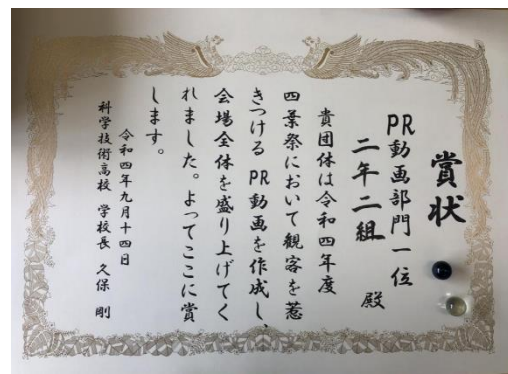 賞状
PR動画部門一位
二年二組 殿
貴団体は令和四年度
四葉祭において観客を惹
きつける PR動画を作成し、
会場全体を盛り上げてく
れました。よってここに賞
します。
令和四年九月十四日
科学技術高校 学校長 久保 剛